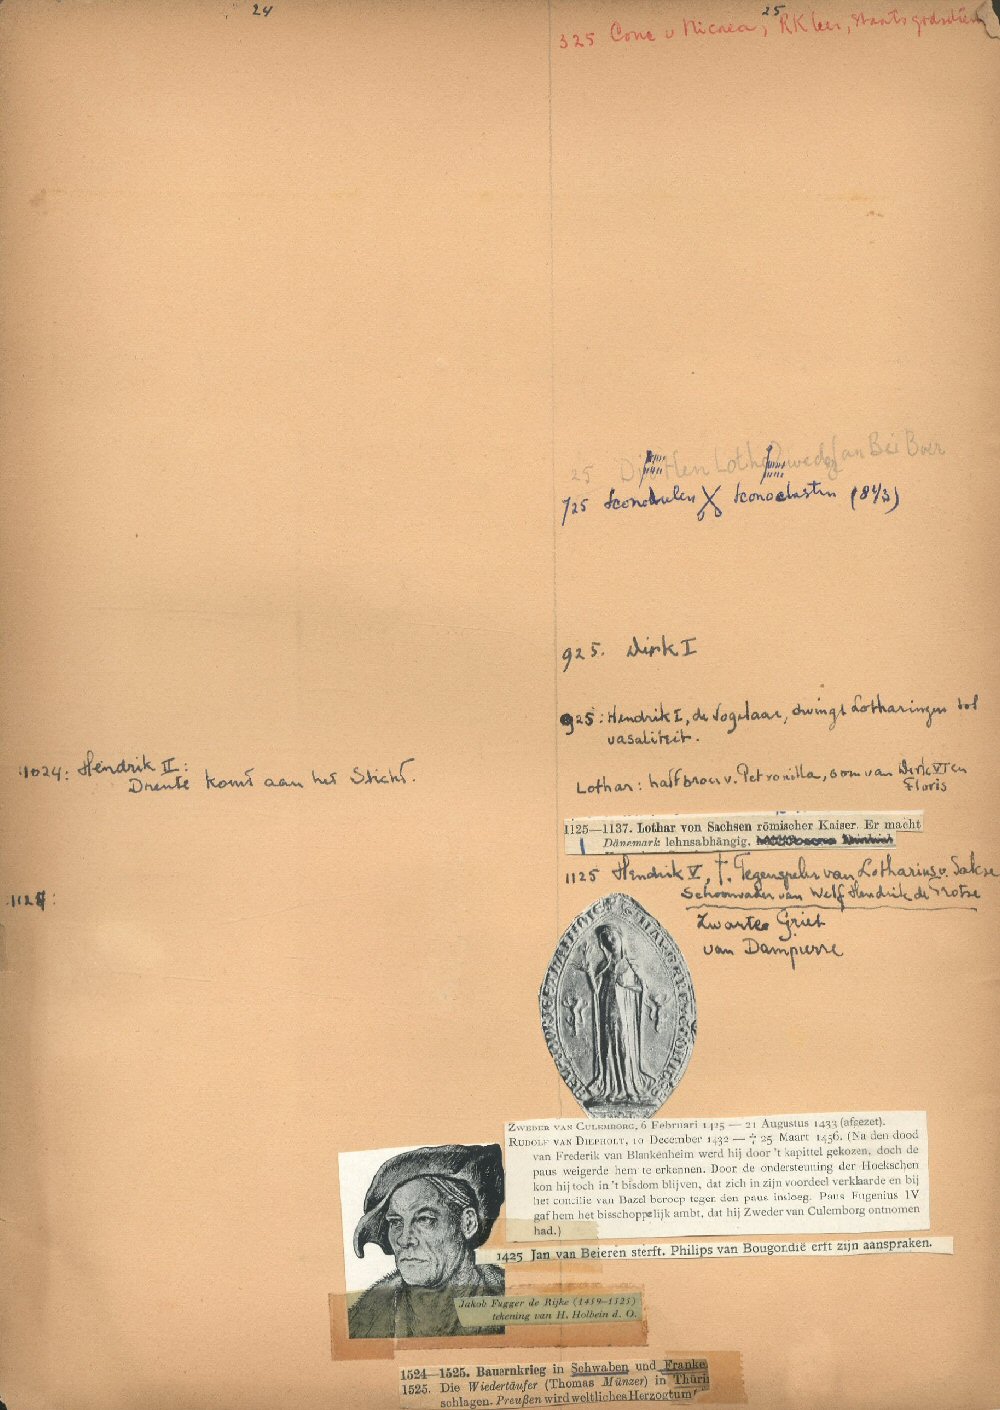 24
25
325 Conc v Nicaea, RK leer, Staatsgodsdienst
25 Di Hen Loth Zweder Jan Bei Boer
725 Iconodulen Iconoclasten (843)
925. Dirk I
925: Hendrik I, de Vogelaar, dwingt Lotharingen tot
vasaliteit.
1024: Hendrik II:
Drente komt aan het Sticht.
Lothar: halfbroer v. Petronilla, oom van Dirk VI en
Floris
1125—1137. Lothar von Sachsen römischer Kaiser. Er macht
Dänemark lehnsabhängig.
1125 Hendrik V, †. Tegenspeler van Lotharius v. Sakse
Schoonvader van Welf Hendrik de Trotse
1124:
Zwarte Griet
van Dampierre
ZWEDER VAN CULEMBORG, 6 Februari 1425 — 21 Augustus 1433 (afgezet).
RUDOLF VAN DIEPHOLT, 10 December 1432 — † 25 Maart 1456. (Na den dood
van Frederik van Blankenheim werd hij door 't kapittel gekozen, doch de
paus weigerde hem te erkennen. Door de ondersteuning der Hoekschen
kon hij toch in 't bisdom blijven, dat zich in zijn voordeel verklaarde en bij
het concilie van Bazel beroep tegen den paus insloeg. Paus Eugenius IV
gaf hem het bisschoppelijk ambt, dat hij Zweder van Culemborg ontnomen
had.)
1425 Jan van Beieren sterft. Philips van Bougondië erft zijn aanspraken.
Jakob Fugger de Rijke (1459–1525)
tekening van H. Holbein d. O.
1524—1525. Bauernkrieg in Schwaben und Franke
1525. Die Wiedertäufer (Thomas Münzer) in Thüri
schlagen. Preußen wird weltliches Herzogtum